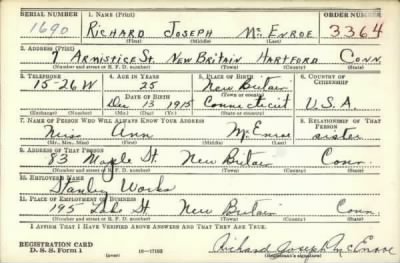 SERIAL NUMBER 1. NAME (Print) ORDER NUMBER
1690 RICHARD JOSEPH McENROE 3364
(First) (Middle) (Last)
2. ADDRESS (Print)
7 ARMISTICE ST. NEW BRITAIN HARTFORD CONN.
(Number and street or R. F. D. number) (Town) (County) (State)
3. TELEPHONE 4. AGE IN YEARS 5. PLACE OF BIRTH 6. COUNTRY OF CITIZENSHIP
15-26W 25 New Britain
DATE OF BIRTH (Town or county)
Dec 13 1915 Connecticut U.S.A.
(Exchange) (Number) (Mo.) (Day) (Yr.) (State or country)
7. NAME OF PERSON WHO WILL ALWAYS KNOW YOUR ADDRESS 8. RELATIONSHIP OF THAT PERSON
Miss Ann McEnroe sister
(Mr., Mrs., Miss) (First) (Middle) (Last)
9. ADDRESS OF THAT PERSON
83 Maple St. New Britain Conn.
(Number and street or R. F. D. number) (Town) (County) (State)
10. EMPLOYER'S NAME
Stanley Works
11. PLACE OF EMPLOYMENT OR BUSINESS
195 Lake St New Britain Conn.
(Number and street or R. F. D. number) (Town) (County) (State)
I AFFIRM THAT I HAVE VERIFIED ABOVE ANSWERS AND THAT THEY ARE TRUE.
REGISTRATION CARD
D. S. S. Form 1 (over) Richard Joseph McEnroe
(Registrant's signature)